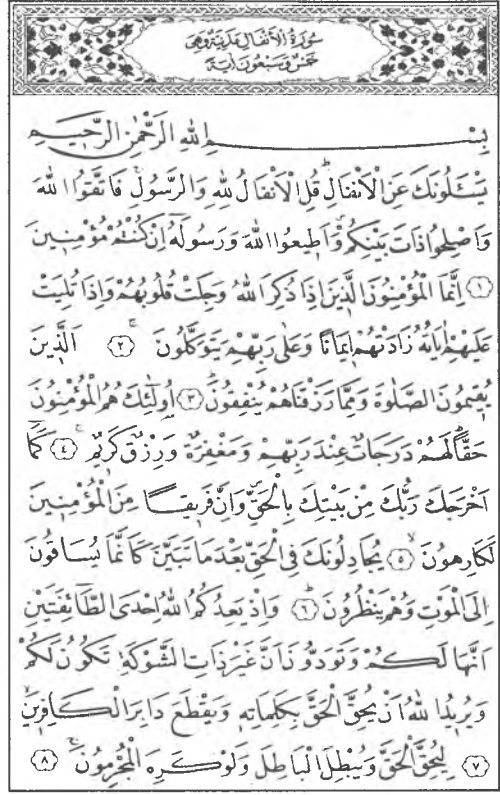 سُورَةُ الْاَنْفَالِ مَدَنِيَّةٌ وَهِىَ
خَمْسٌ وَسَبْعُونَ اٰيَةً
بِسْمِ اللهِ الرَّحْمٰنِ الرَّحِيمِ
يَسْـَٔلُونَكَ عَنِ الْاَنْفَالِ قُلِ الْاَنْفَالُ لِلّٰهِ وَالرَّسُولِ فَاتَّقُوا اللهَ
وَاَصْلِحُوا ذَاتَ بَيْنِكُمْ وَاَطِيعُوا اللهَ وَرَسُولَهُٓ اِنْ كُنْتُمْ مُؤْمِنِينَ
﴿١﴾ اِنَّمَا الْمُؤْمِنُونَ الَّذِينَ اِذَا ذُكِرَ اللهُ وَجِلَتْ قُلُوبُهُمْ وَاِذَا تُلِيَتْ
عَلَيْهِمْ اٰيَاتُهُ زَادَتْهُمْ اِيمَانًا وَعَلٰى رَبِّهِمْ يَتَوَكَّلُونَ ﴿٢﴾ اَلَّذِينَ
يُقِيمُونَ الصَّلٰوةَ وَمِمَّا رَزَقْنَاهُمْ يُنْفِقُونَ ﴿٣﴾ اُولٰٓئِكَ هُمُ الْمُؤْمِنُونَ
حَقًّا لَهُمْ دَرَجَاتٌ عِنْدَ رَبِّهِمْ وَمَغْفِرَةٌ وَرِزْقٌ كَرِيمٌ ﴿٤﴾ كَمَٓا
اَخْرَجَكَ رَبُّكَ مِنْ بَيْتِكَ بِالْحَقِّ وَاِنَّ فَرِيقًا مِنَ الْمُؤْمِنِينَ
لَكَارِهُونَ ﴿٥﴾ يُجَادِلُونَكَ فِى الْحَقِّ بَعْدَ مَا تَبَيَّنَ كَاَنَّمَا يُسَاقُونَ
اِلَى الْمَوْتِ وَهُمْ يَنْظُرُونَ ﴿٦﴾ وَاِذْ يَعِدُكُمُ اللهُ اِحْدَى الطَّٓائِفَتَيْنِ
اَنَّهَا لَكُمْ وَتَوَدُّونَ اَنَّ غَيْرَ ذَاتِ الشَّوْكَةِ تَكُونُ لَكُمْ
وَيُرِيدُ اللهُ اَنْ يُحِقَّ الْحَقَّ بِكَلِمَاتِهِ وَيَقْطَعَ دَابِرَ الْكَافِرِينَ
﴿٧﴾ لِيُحِقَّ الْحَقَّ وَيُبْطِلَ الْبَاطِلَ وَلَوْ كَرِهَ الْمُجْرِمُونَ ﴿٨﴾